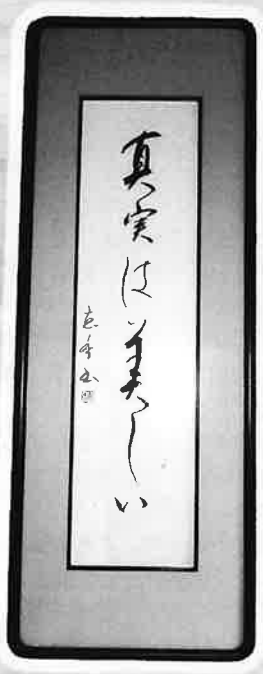 真実は美しい